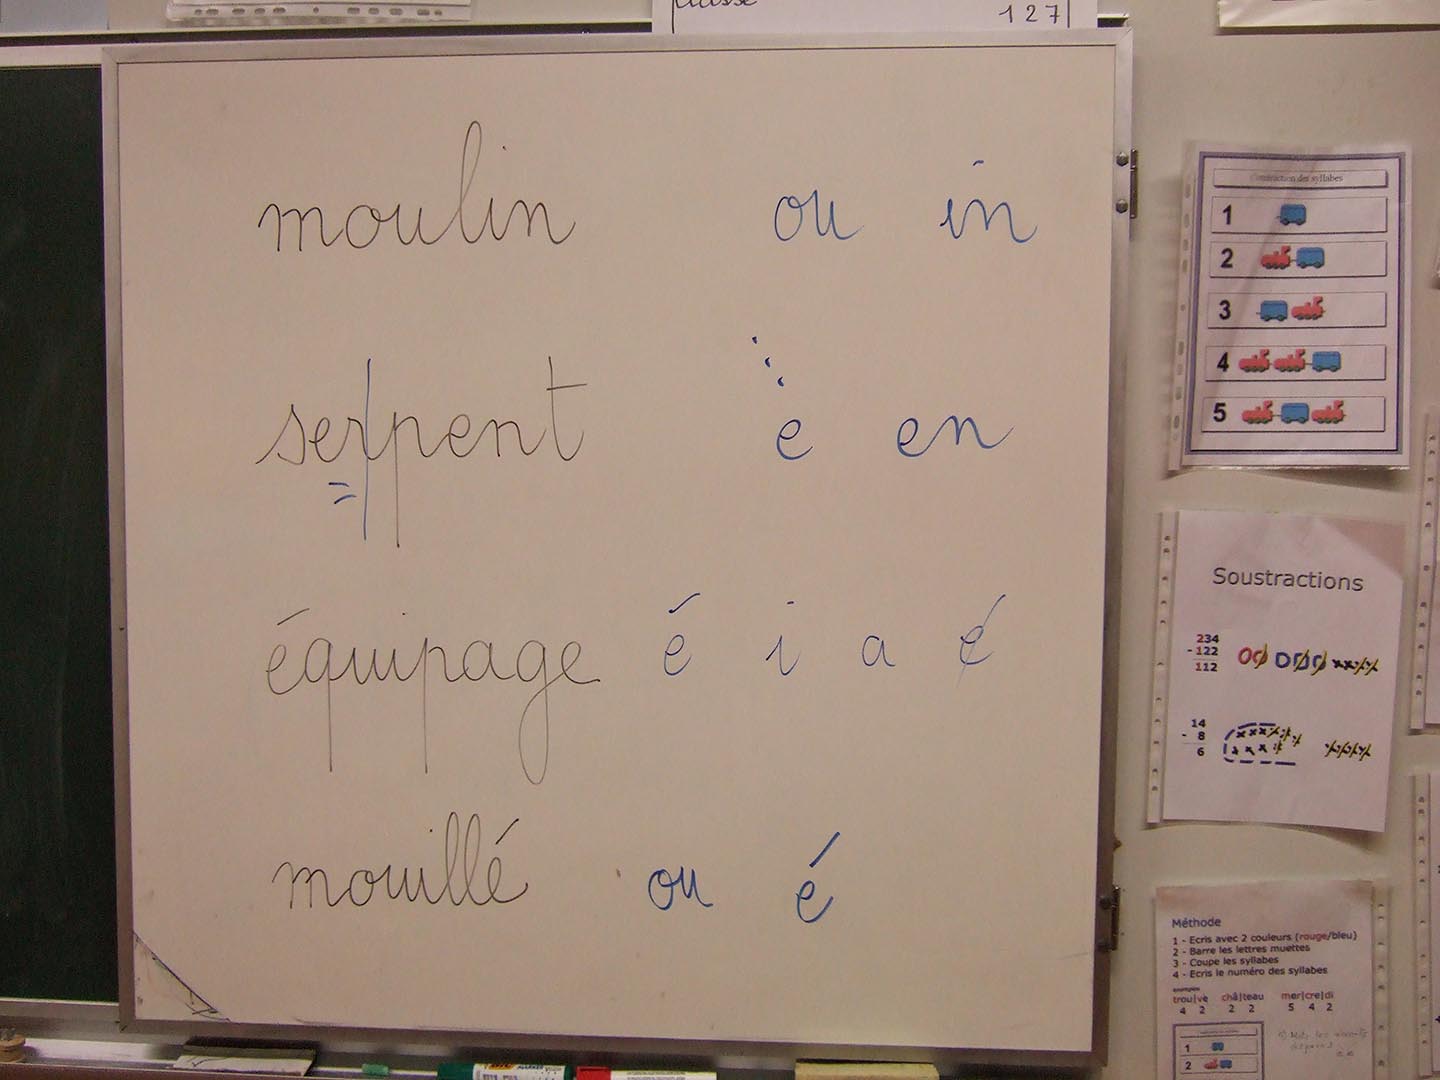 classe
127
moulin ou in
serpent e en
équipage é i a é
mouillé ou é
Construction des syllabes
1
2
3
4
5
Soustractions
234
-122
112
14
- 8
6
Méthode
1 - Ecris avec 2 couleurs (rouge/bleu)
2 - Barre les lettres muettes
3 - Coupe les syllabes
4 - Ecris le numéro des syllabes
exemples
trou|ve châ|teau mer|cre|di
4 2 2 2 5 4 2
1
2